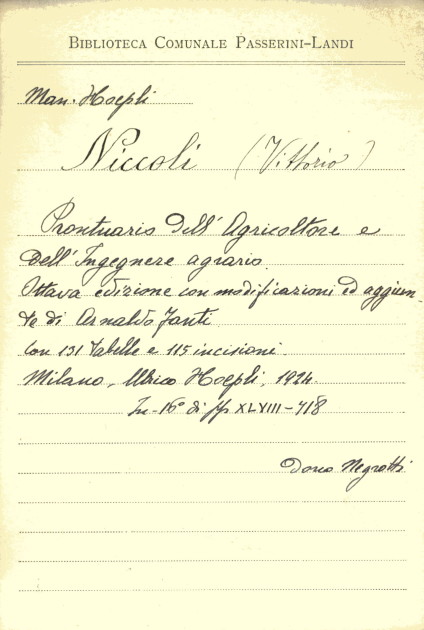 BIBLIOTECA COMUNALE PASSERINI-LANDI
Man. Hoepli
Niccoli (Vittorio)
Prontuario dell' Agricoltore e
dell' Ingegnere agrario.
Ottava edizione con modificazioni ed aggiun-
te di Arnaldo Fanti
Con 131 tabelle e 115 incisioni.
Milano, Ulrico Hoepli, 1924.
In-16° di pp XLVIII-718
Dono Negrotti